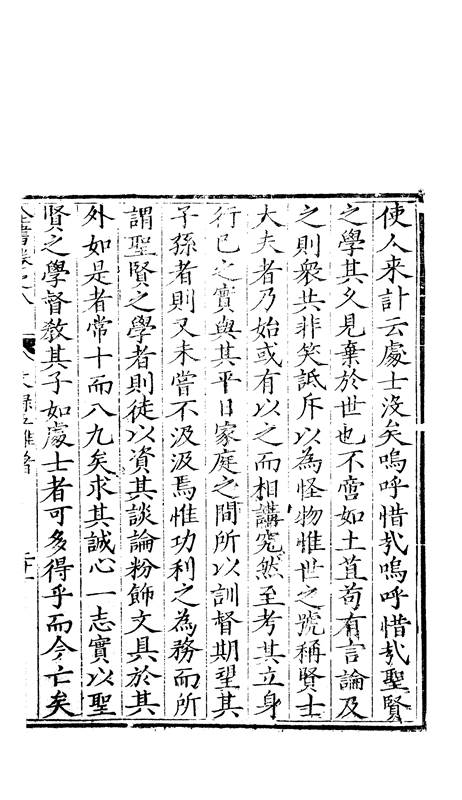 使人来計云處士沒矣嗚呼惜㢤嗚呼惜㢤聖賢
之學其久見棄於世也不啻如土苴苟有言論及
之則衆共非笑詆斥以為怪物惟世之號稱賢士
大夫者乃始或有以之而相講究然至考其立身
行已之實與其平日家庭之間所以訓督期望其
子孫者則又未嘗不汲汲焉惟功利之為務而所
謂聖賢之學者則徒以資其談論粉飾文具於其
外如是者常十而八九矣求其誠心一志實以聖
賢之學督教其子如處士者可多得乎而今亡矣